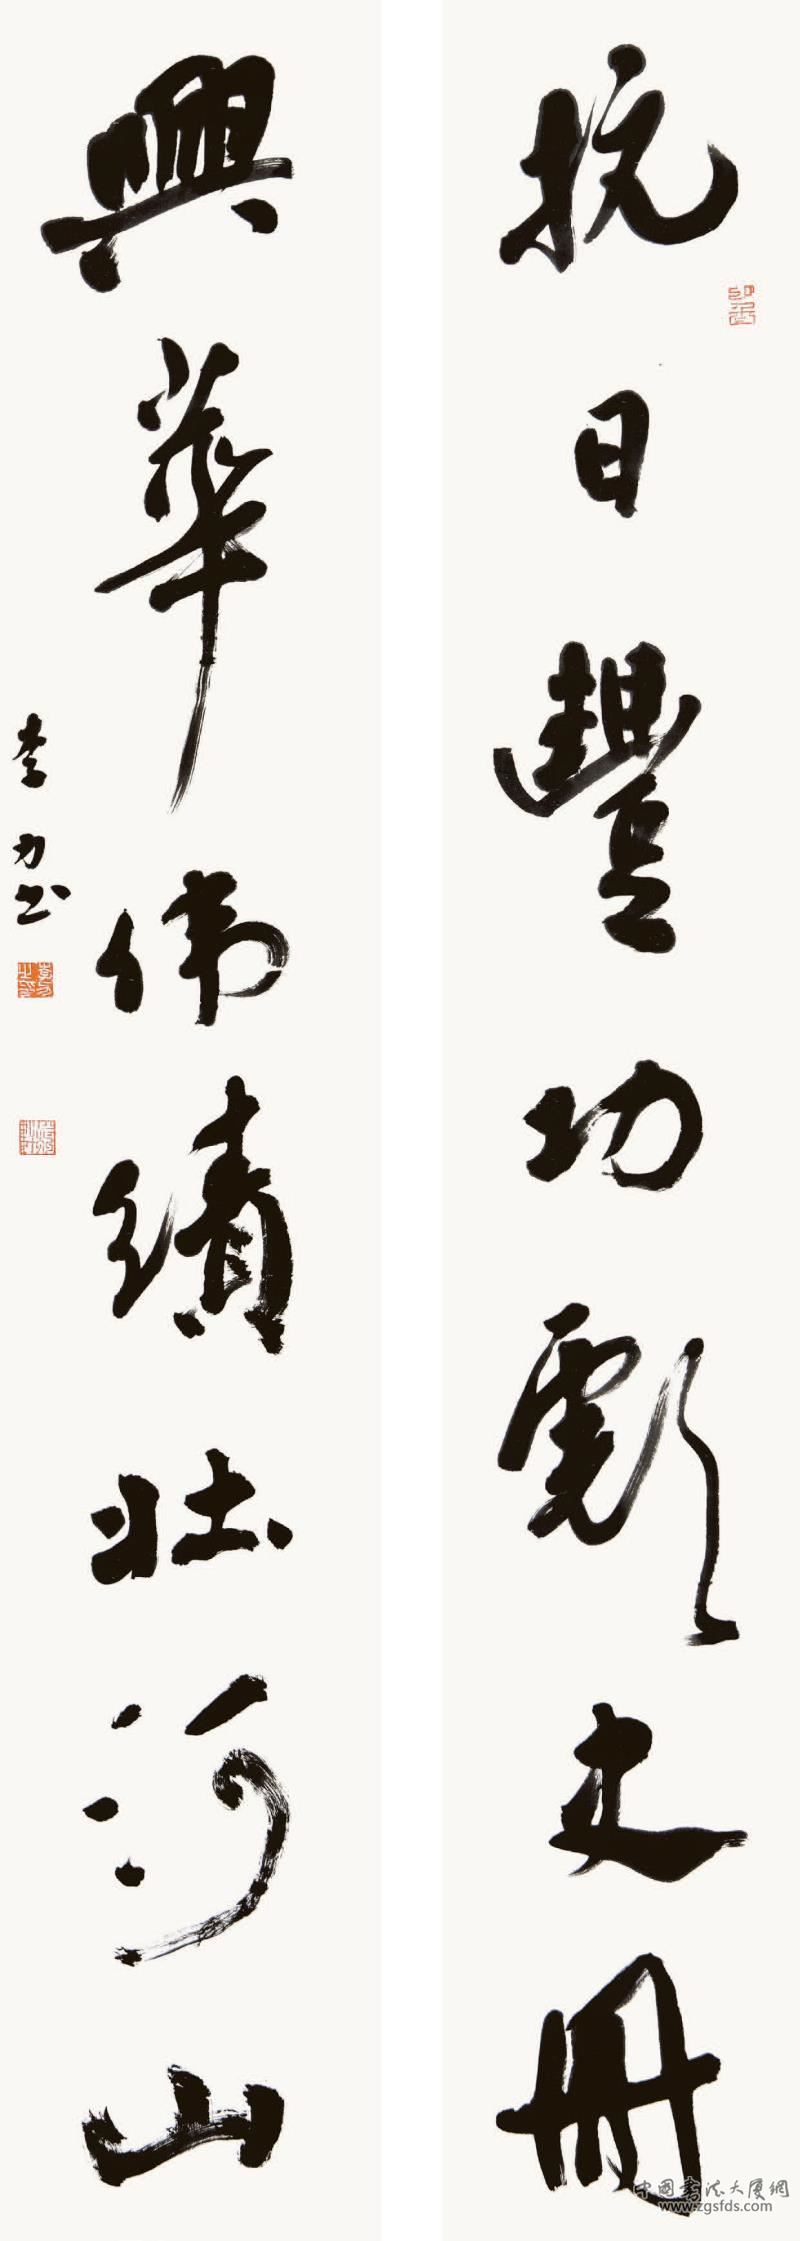 抗日豐功彪史冊
興華伟績壮河山
李力书
中國書法大厦網
www.zgsfds.com